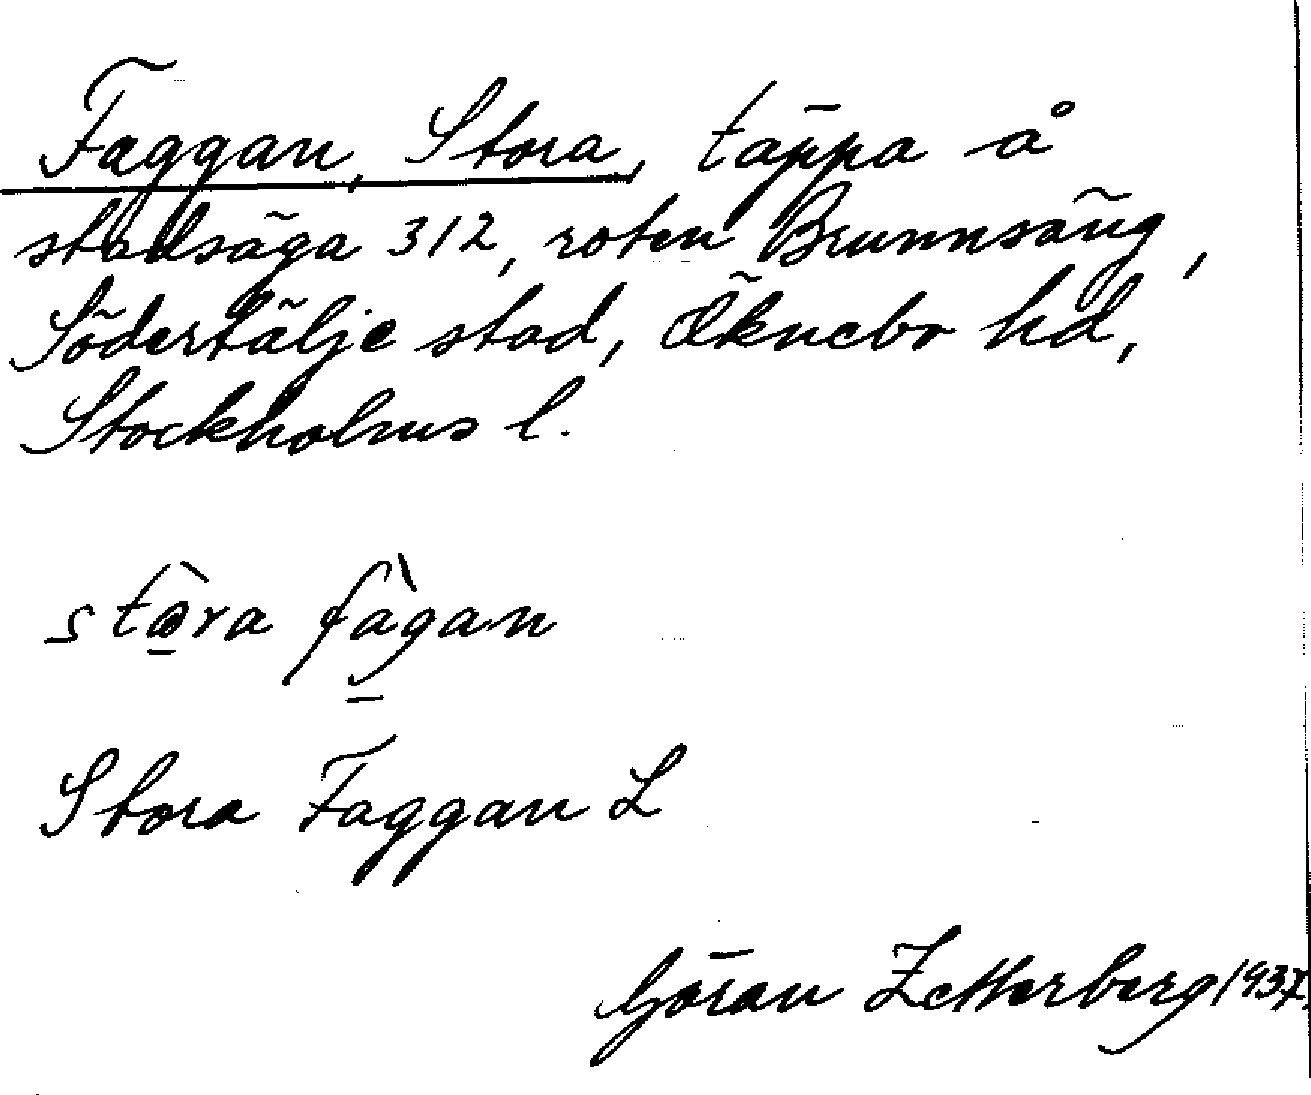 Faggan, Stora, täppa å
stadsäga 312, roten Brunnsäng,
Södertälje stad, Öknebo hd,
Stockholms l.
stòra fàgan
Stora Faggan L
Göran Zetterberg 1937.